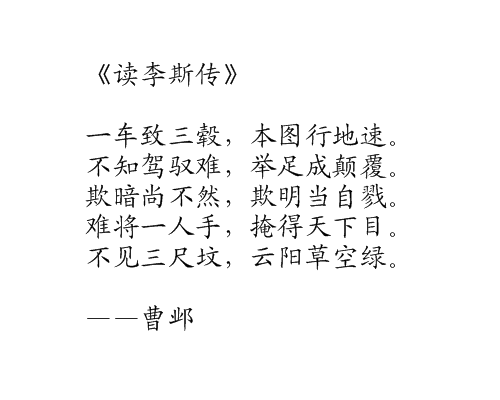 《读李斯传》
一车致三毂，本图行地速。
不知驾驭难，举足成颠覆。
欺暗尚不然，欺明当自戮。
难将一人手，掩得天下目。
不见三尺坟，云阳草空绿。
——曹邺